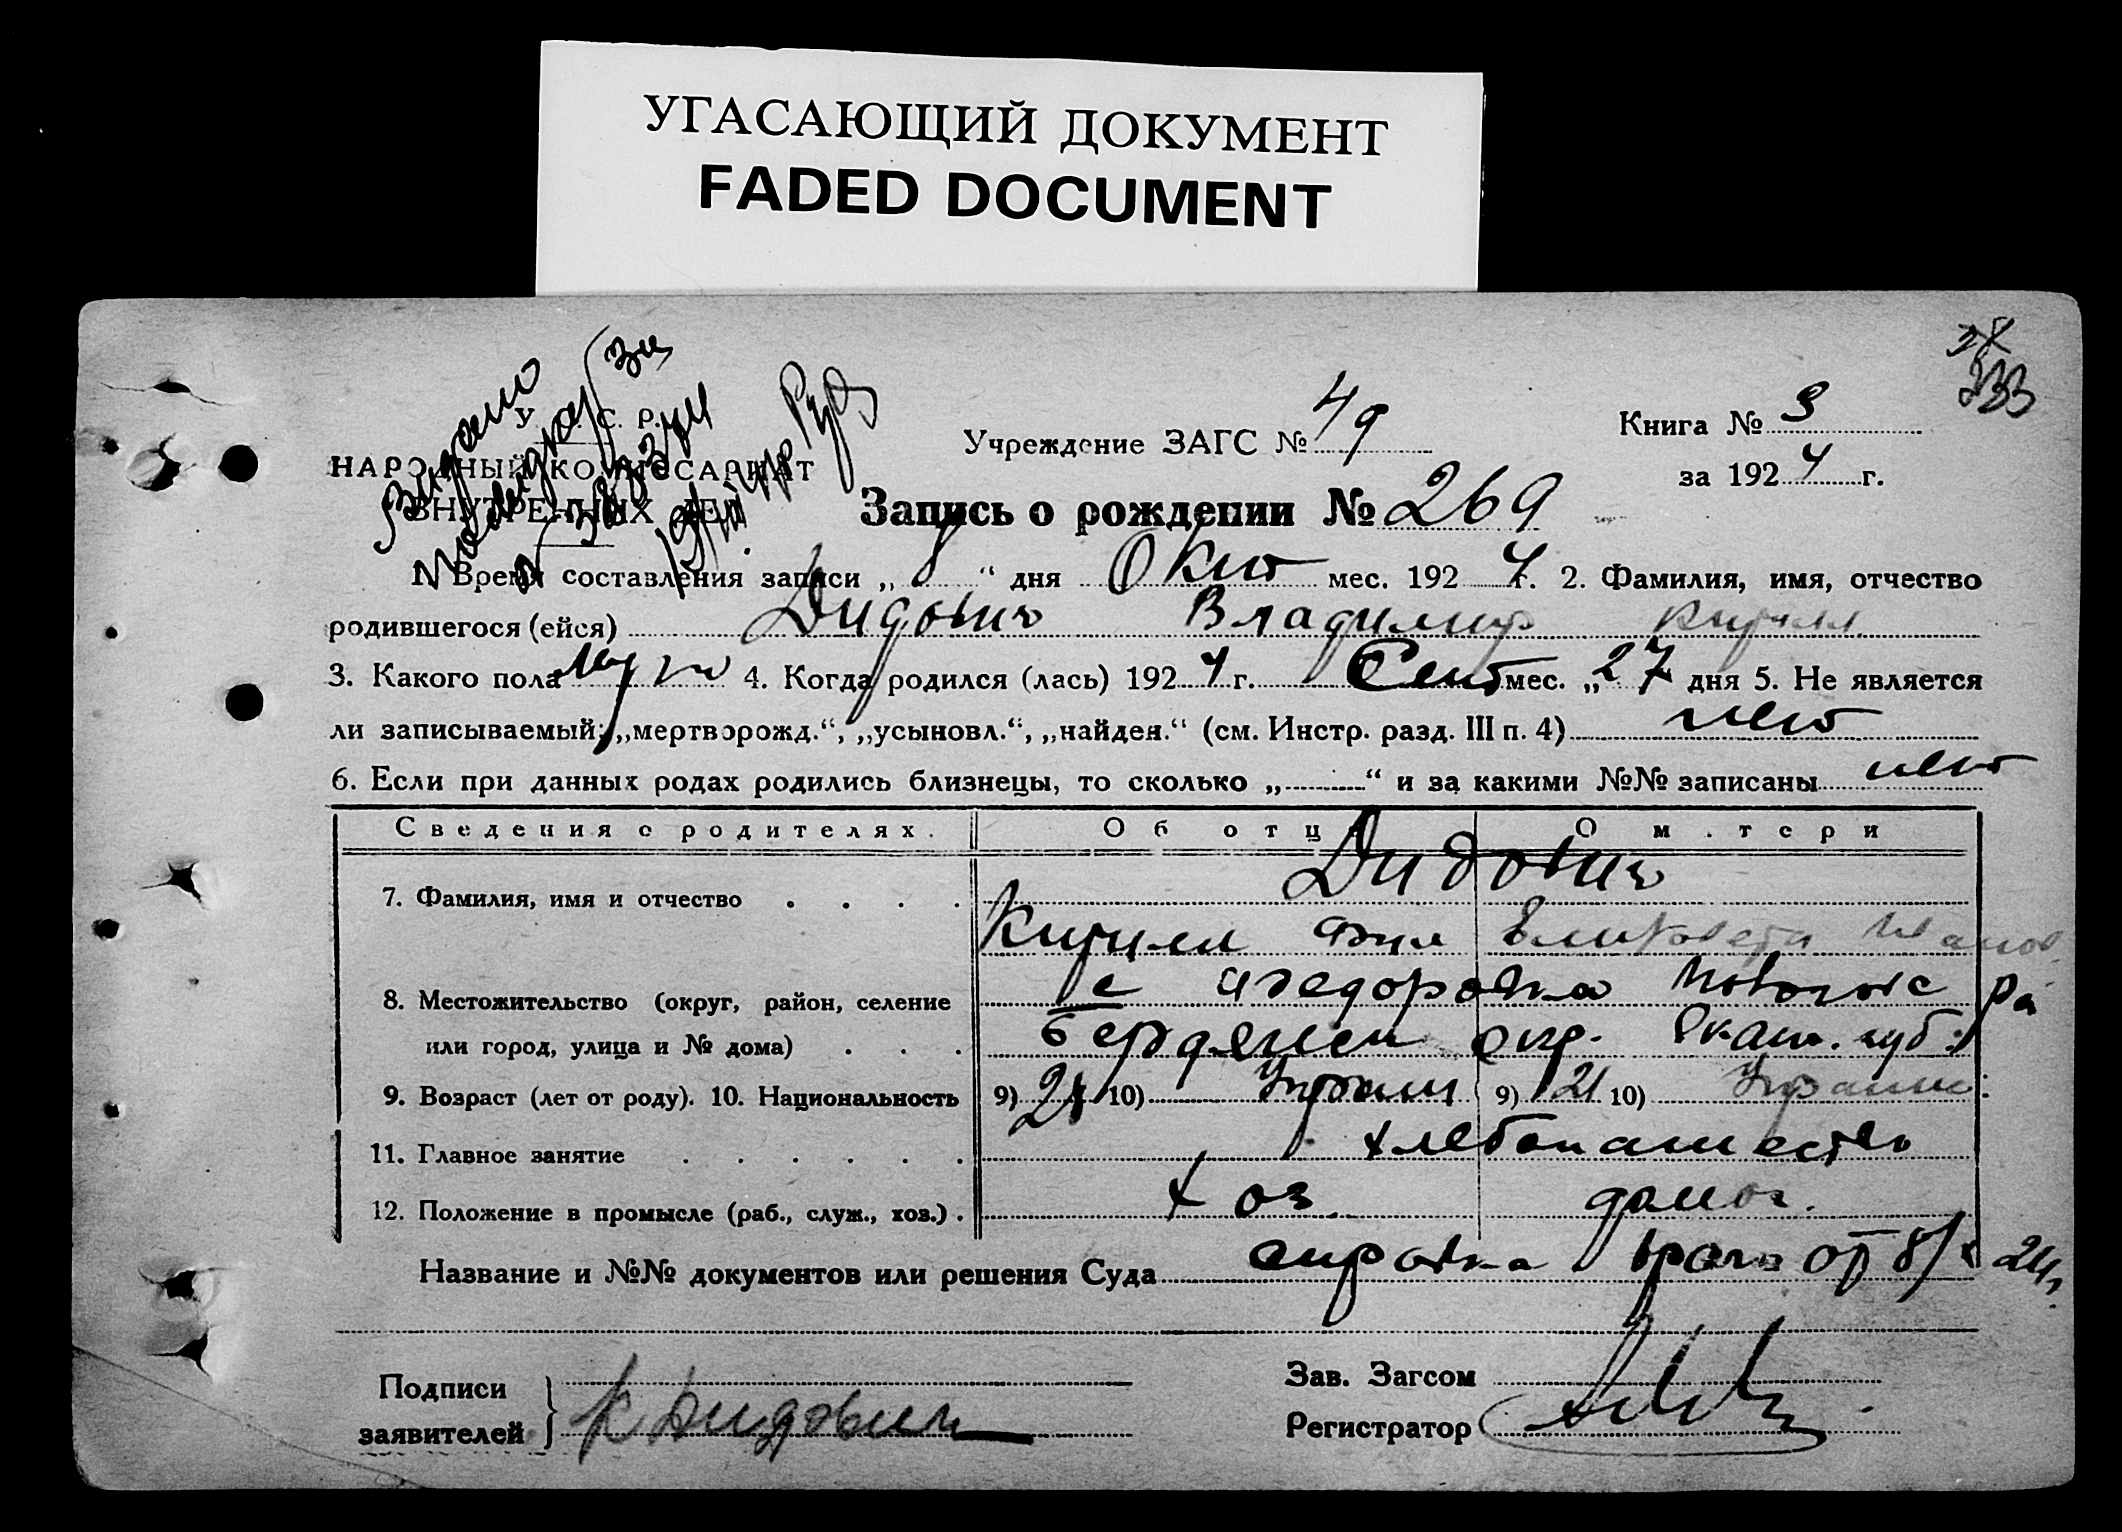 УГАСАЮЩИЙ ДОКУМЕНТ
FADED DOCUMENT
У. С. С. Р.
НАРОДНЫЙ КОМИССАРИАТ
ВНУТРЕННИХ ДЕЛ
Учреждение ЗАГС № 49
Книга № 3
за 1924 г.
Запись о рождении № 269
1. Время составления записи „8“ дня Окт мес. 1924 г. 2. Фамилия, имя, отчество
родившегося (ейся) Дидович Владимир Кирилл
3. Какого пола муж 4. Когда родился (лась) 1924 г. Сент мес. „27 дня 5. Не является
ли записываемый: „мертворожд.“, „усыновл.“, „найден.“ (см. Инстр. разд. III п. 4) нет
6. Если при данных родах родились близнецы, то сколько „ “ и за какими №№ записаны нет
Сведения о родителях. Об отце О матери
7. Фамилия, имя и отчество Дидович
Кирилл Фил Елизавета Иванов
8. Местожительство (округ, район, селение с Федоровка
или город, улица и № дома) Бердянск окр. Екат. губ.
9. Возраст (лет от роду). 10. Национальность 9) 21 10) Украин 9) 21 10) Украин
11. Главное занятие хлебопашество
12. Положение в промысле (раб., служ., хоз.) хоз. домох.
Название и №№ документов или решения Суда справка врача от 8/X 24г.
Подписи
заявителей К Дидович
Зав. Загсом
Регистратор